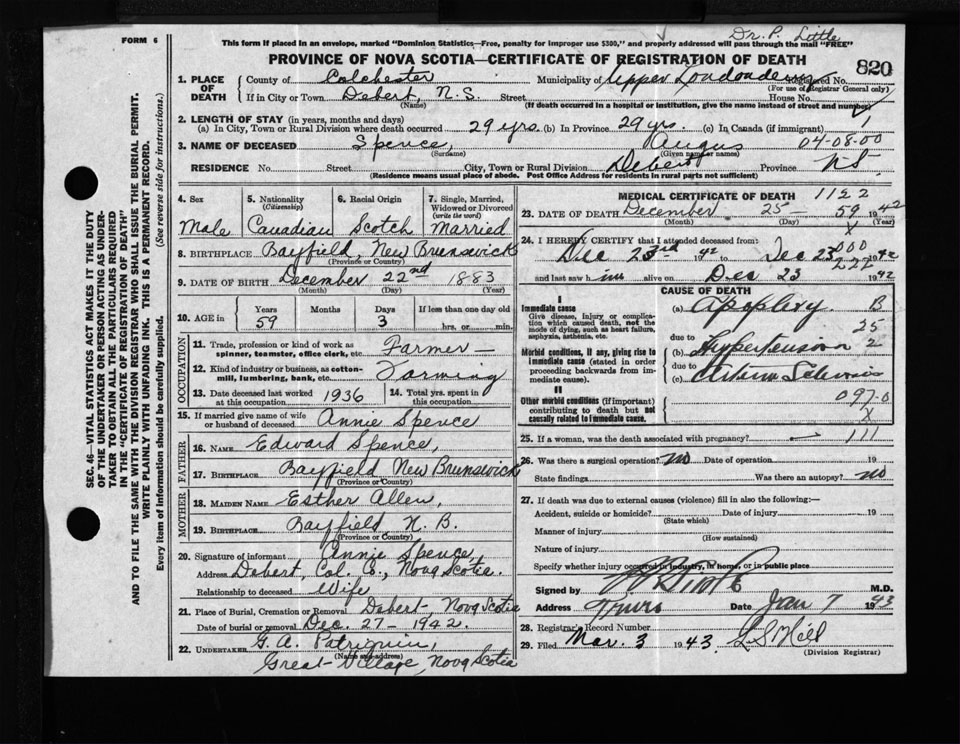 Dr. P. Little
FORM 6
This form if placed in an envelope, marked "Dominion Statistics—Free, penalty for improper use $300," and properly addressed will pass through the mail "FREE"
PROVINCE OF NOVA SCOTIA—CERTIFICATE OF REGISTRATION OF DEATH
820
1. PLACE OF DEATH County of Colchester Municipality of Upper Londonderry Registered No.
(For use of Registrar General only)
If in City or Town Debert, N.S. Street House No.
(Name) (If death occurred in a hospital or institution, give the name instead of street and number)
2. LENGTH OF STAY (in years, months and days)
(a) In City, Town or Rural Division where death occurred 29 yrs. (b) In Province 29 yrs. (c) In Canada (if immigrant)
3. NAME OF DECEASED Spence, Angus 04-08-00
(Surname) (Given name or names)
RESIDENCE No. Street City, Town or Rural Division Debert Province N.S.
(Residence means usual place of abode. Post Office Address for residents in rural parts not sufficient)
4. Sex Male
5. Nationality (Citizenship) Canadian
6. Racial Origin Scotch
7. Single, Married, Widowed or Divorced (write the word) Married
8. BIRTHPLACE Bayfield, New Brunswick
(Province or Country)
9. DATE OF BIRTH December 22nd 1883
(Month) (Day) (Year)
10. AGE in Years 59 Months Days 3 If less than one day old hrs. or min.
OCCUPATION
11. Trade, profession or kind of work as spinner, teamster, office clerk, etc. Farmer
12. Kind of industry or business, as cotton-mill, lumbering, bank, etc. Farming
13. Date deceased last worked at this occupation 1936
14. Total yrs. spent in this occupation
15. If married give name of wife or husband of deceased Annie Spence
FATHER
16. NAME Edward Spence,
17. BIRTHPLACE Bayfield New Brunswick
(Province or Country)
MOTHER
18. MAIDEN NAME Esther Allen,
19. BIRTHPLACE Bayfield N. B.
(Province or Country)
20. Signature of informant Annie Spence,
Address Debert, Col. Co., Nova Scotia.
Relationship to deceased Wife
21. Place of Burial, Cremation or Removal Debert, Nova Scotia
Date of burial or removal Dec. 27 - 1942.
22. UNDERTAKER G. A. Patriquin
(Name and address)
Great Village, Nova Scotia
MEDICAL CERTIFICATE OF DEATH 1122
23. DATE OF DEATH December 25 59 1942
(Month) (Day) (Year)
24. I HEREBY CERTIFY that I attended deceased from:
Dec 23rd 1942 to Dec 23 1942
000
222
and last saw him alive on Dec 23 1942
CAUSE OF DEATH
I
Immediate cause
Give disease, injury or complication which caused death, not the mode of dying, such as heart failure, asphyxia, asthenia, etc.
(a) Apoplexy B
25
due to
Morbid conditions, if any, giving rise to immediate cause (stated in order proceeding backwards from immediate cause).
(b) Hypertension 2
due to
(c) Arterio Sclerosis
II
Other morbid conditions (if important) contributing to death but not causally related to immediate cause.
097.0
X
25. If a woman, was the death associated with pregnancy? 111
26. Was there a surgical operation? no Date of operation 19
State findings Was there an autopsy? no
27. If death was due to external causes (violence) fill in also the following:—
Accident, suicide or homicide? Date of injury 19
(State which)
Manner of injury
(How sustained)
Nature of injury
Specify whether injury occurred in industry, in home, or in public place
Signed by M.D.
Address Truro Date Jan 7 1943
28. Registrar's Record Number
29. Filed Mar. 3 1943 L S Hill
(Division Registrar)
SEC. 46—VITAL STATISTICS ACT MAKES IT THE DUTY
OF THE UNDERTAKER OR PERSON ACTING AS UNDERTAKER TO OBTAIN ALL THE PARTICULARS REQUIRED
IN THE "CERTIFICATE OF REGISTRATION OF DEATH"
AND TO FILE THE SAME WITH THE DIVISION REGISTRAR WHO SHALL ISSUE THE BURIAL PERMIT.
WRITE PLAINLY WITH UNFADING INK. THIS IS A PERMANENT RECORD.
Every item of information should be carefully supplied. (See reverse side for instructions.)